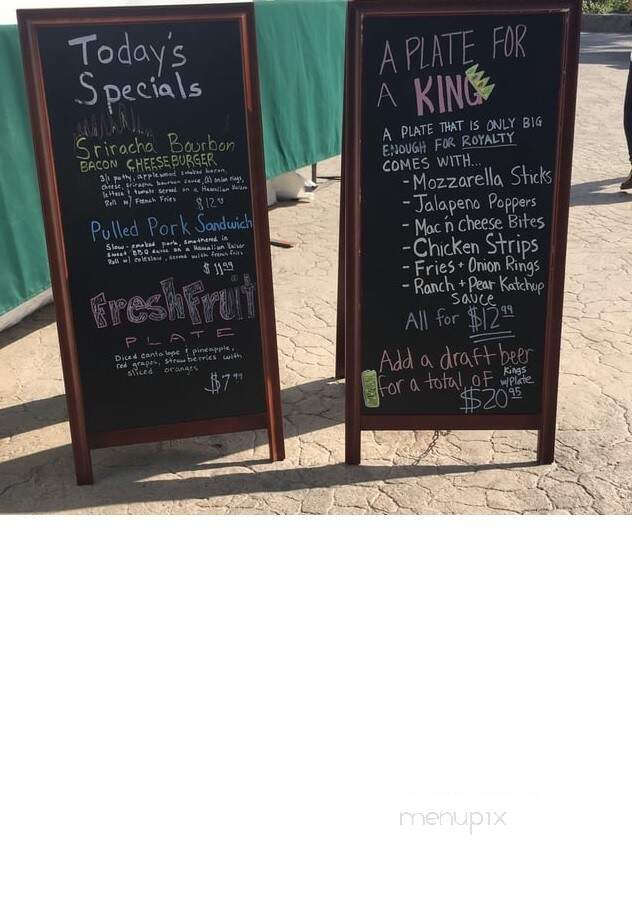 Today's
Specials
Sriracha Bourbon
BACON CHEESEBURGER
patty, applewood smoked bacon,
cheese, sriracha bourbon sauce, (2) onion rings,
lettuce & tomato served on a Hawaiian Kaiser
Roll w/ French Fries
$12
Pulled Pork Sandwich
Slow-smoked pork, smothered in
Sweet BBQ sauce on a Hawaiian Kaiser
Roll w/ coleslaw, served with french fries
$11.99
Fresh Fruit
PLATE
Diced cantalope & pineapple,
red grapes, strawberries with
sliced oranges
$7.99
A PLATE FOR
A KING
A PLATE THAT IS ONLY BIG
ENOUGH FOR ROYALTY
COMES WITH...
- Mozzarella Sticks
- Jalapeno Poppers
- Mac n cheese Bites
- Chicken Strips
- Fries + Onion Rings
- Ranch + Pear Katchup
sauce
All for $12.99
Add a draft beer
for a total of Kings w/Plate
$20.95
menupix